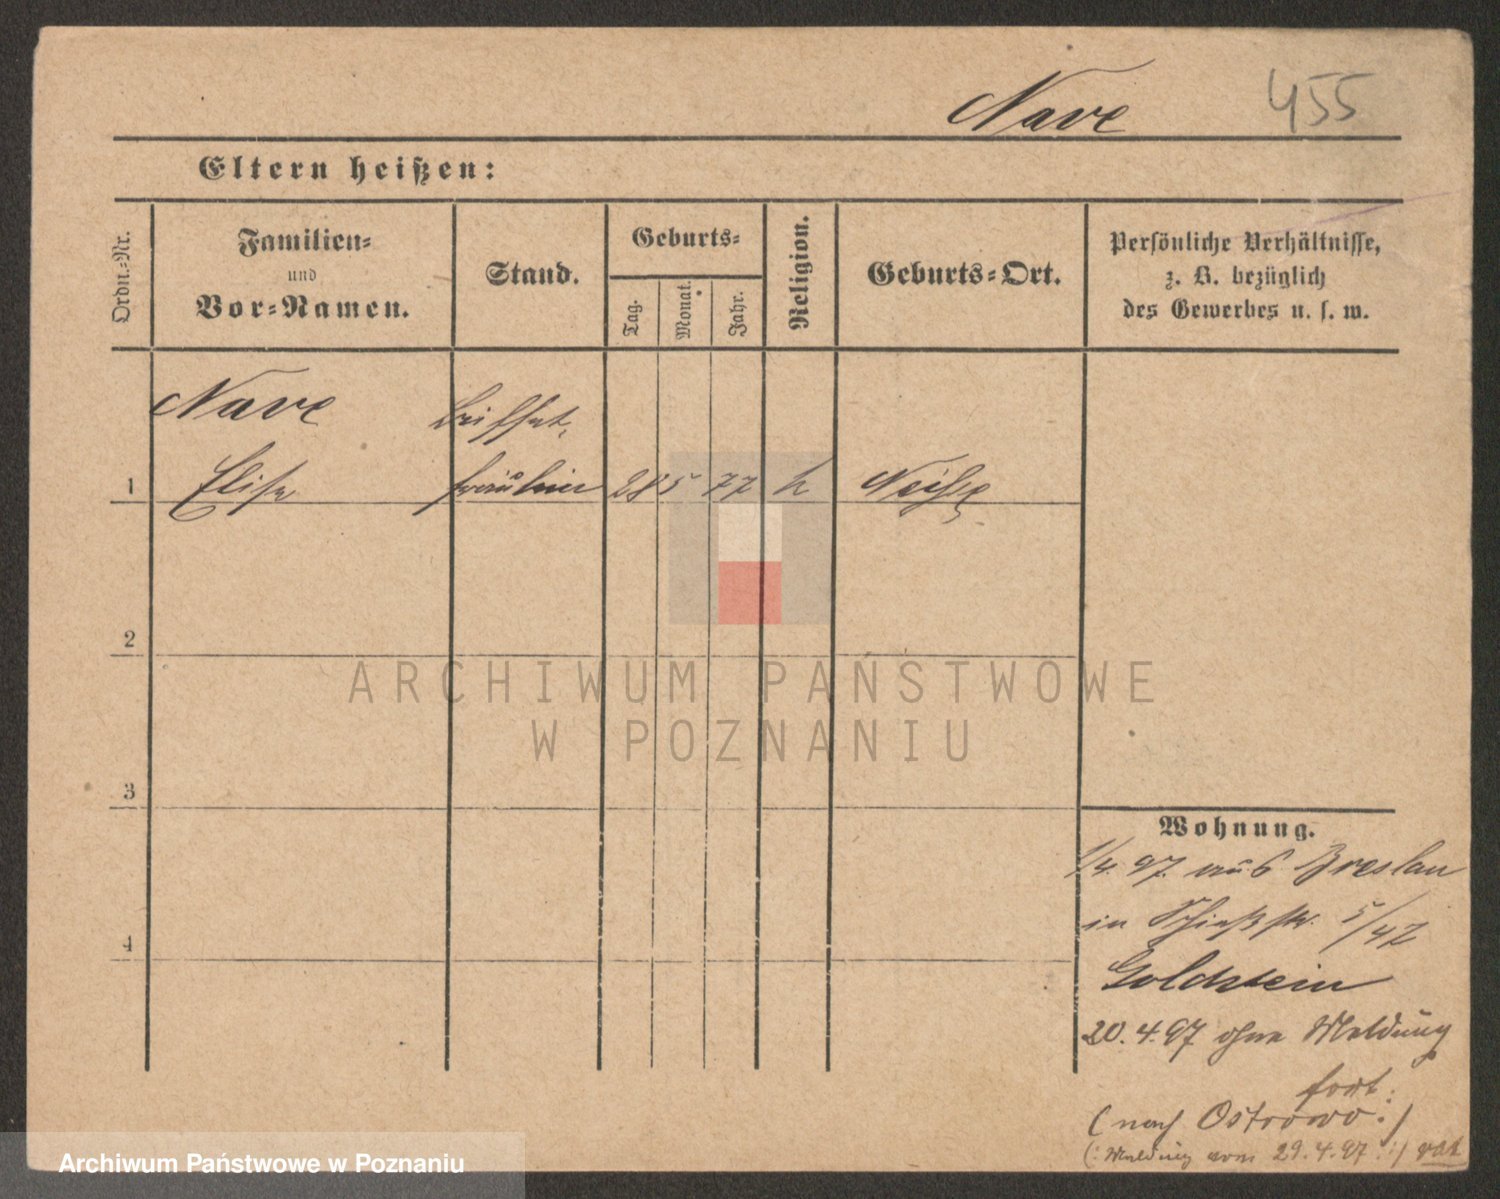 Nave 455
Eltern heißen:
Ordn.-Nr.
Familien-
und
Vor-Namen.
Stand.
Geburts-
Tag.
Monat.
Jahr.
Religion.
Geburts-Ort.
Persönliche Verhältnisse,
z. B. bezüglich
des Gewerbes u. s. w.
Nave
Büffet-
1 Elise fräulein 28 5 77 k Neisse
2
3
4
Wohnung.
1/4. 97. aus Breslau
in Schießstr. 5/47
Goldstein
20. 4. 97 ohne Meldung
fort.
(nach Ostrowo:)
(: Meldung vom 29.4.97 :)
ARCHIWUM PAŃSTWOWE
W POZNANIU
Archiwum Państwowe w Poznaniu